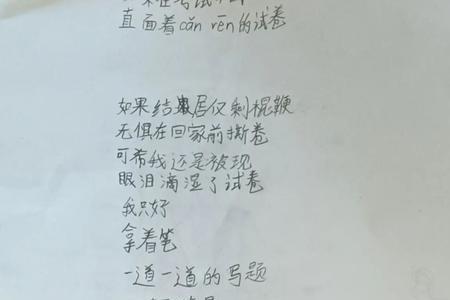 考试
直面着cǎn rěn的试卷
如果结局仅剩棍鞭
无惧在回家前撕卷
可希我还是被现
眼泪滴湿了试卷
我只好
拿着笔
一道一道的写题